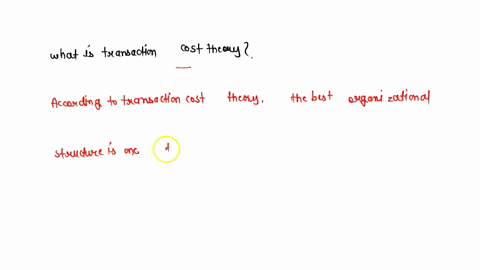 what is transaction cost theory?.
According to transaction cost theory, the best organizational
structure is one